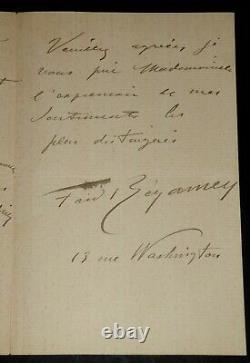 Veuillez agréer, je
vous prie Mademoiselle
l'expression de mes
Sentiments les
plus distingués
Régamey
13 rue Washington